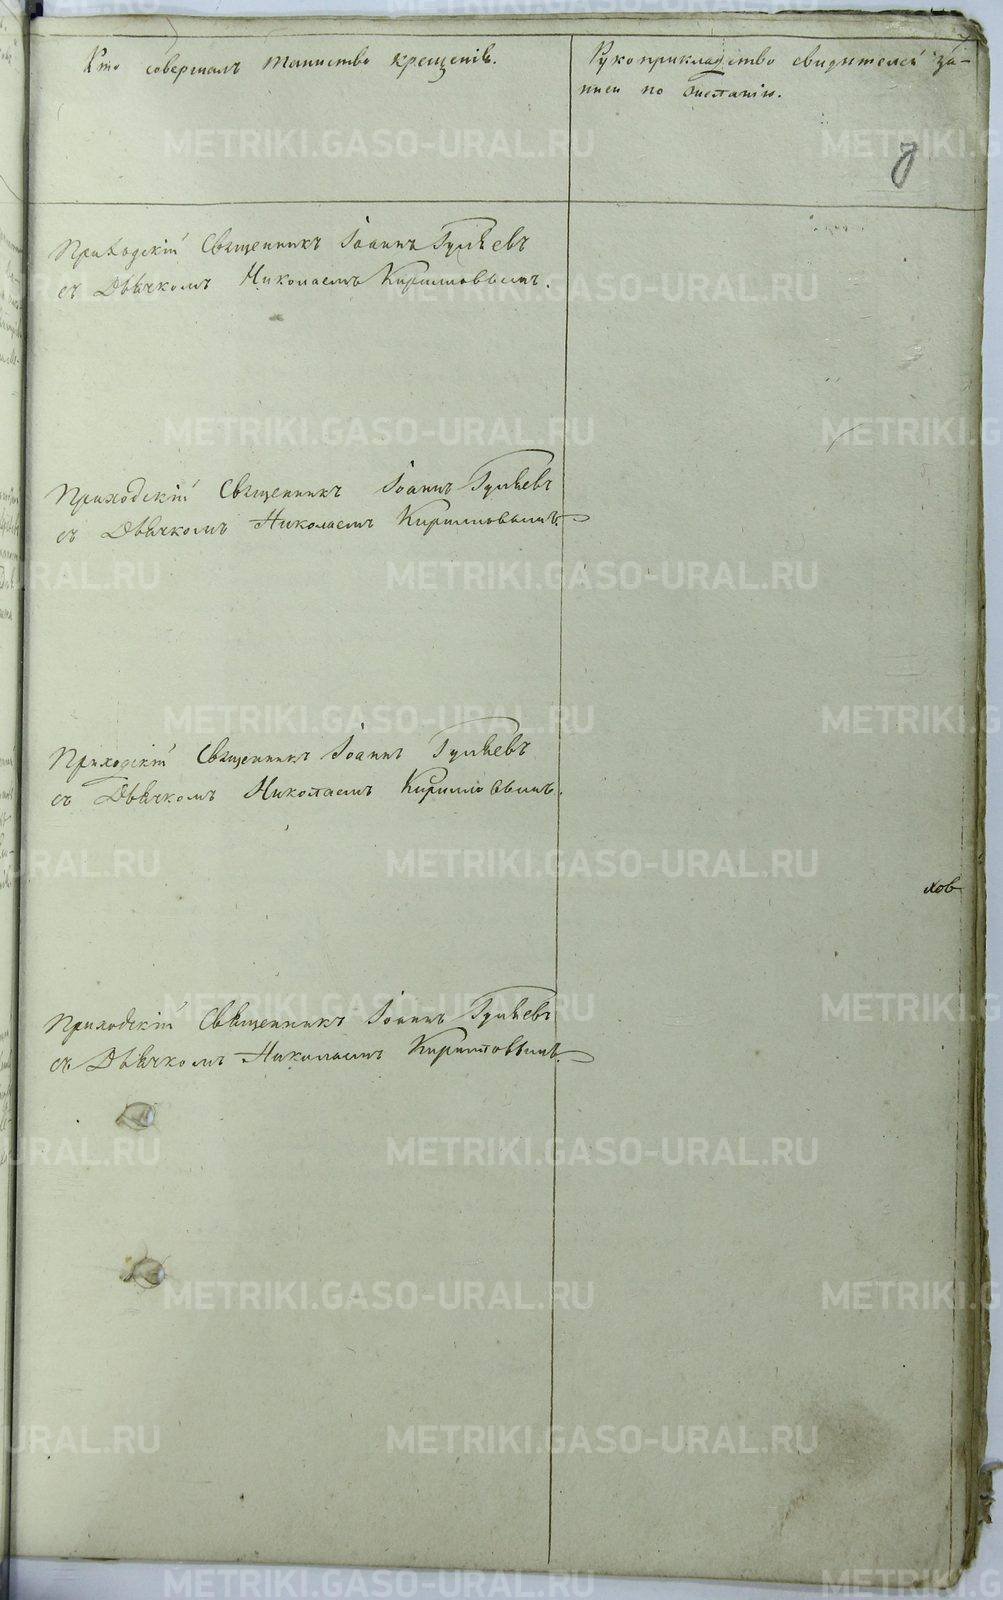 Кто совершалъ таинство крещенія.
Рукоприкладство свидѣтелей за-
писи по желанію.
8
Приходскій Священникъ Іоаннъ Гуляевъ
съ Дьячкомъ Николаемъ Кирилловымъ.
Приходскій Священникъ Іоаннъ Гуляевъ
съ Дьячкомъ Николаемъ Кирилловымъ.
Приходскій Священникъ Іоаннъ Гуляевъ
съ Дьячкомъ Николаемъ Кирилловымъ.
хов
Приходскій Священникъ Іоаннъ Гуляевъ
съ Дьячкомъ Николаемъ Кирилловымъ.
METRIKI.GASO-URAL.RU